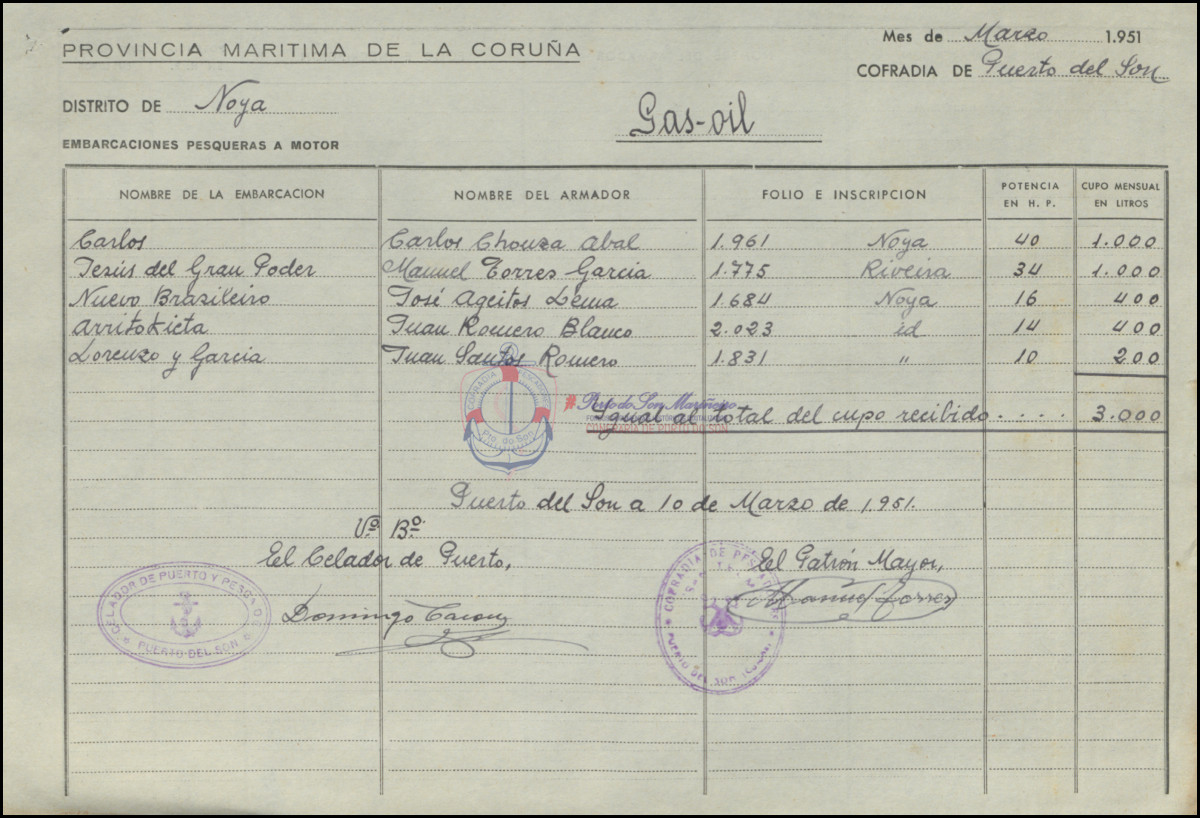 PROVINCIA MARITIMA DE LA CORUÑA
Mes de Marzo 1.951
COFRADIA DE Puerto del Son
DISTRITO DE Noya
Gas-oil
EMBARCACIONES PESQUERAS A MOTOR
NOMBRE DE LA EMBARCACION NOMBRE DEL ARMADOR FOLIO E INSCRIPCION POTENCIA EN H. P. CUPO MENSUAL EN LITROS
Carlos Carlos Chouza Abal 1.961 Noya 40 1.000
Jesús del Gran Poder Manuel Torres García 1.775 Riveira 34 1.000
Nuevo Brasileiro José Ageitos Lema 1.684 Noya 16 400
Arritokieta Juan Romero Blanco 2.023 id 14 400
Lorenzo y Garcia Juan Santos Romero 1.831 " 10 200
Igual al total del cupo recibido . . . . 3.000
COFRADIA
Pto. do Son
Porto do Son Mariñeiro
COFRADIA DE PORTO DO SON
Puerto del Son a 10 de Marzo de 1.951.
Vº. Bº.
El Celador de Puerto,
El Patrón Mayor,
CELADOR DE PUERTO Y PESCA DE
PUERTO DEL SON
Domingo
Manuel Torres
COFRADIA DE PESCADORES
PUERTO DEL SON